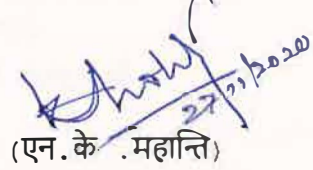 27/11/2020
(एन. के. महान्ति)